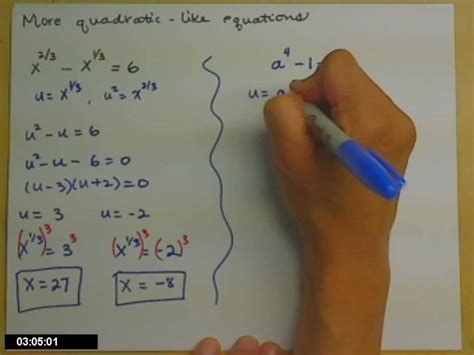 More quadratic-like equations
x^{2/3} - x^{1/3} = 6
u = x^{1/3}, u² = x^{2/3}
u² - u = 6
u² - u - 6 = 0
(u-3)(u+2) = 0
u = 3 u = -2
(x^{1/3})³ = 3³ (x^{1/3})³ = (-2)³
x = 27 x = -8
a⁴ - 1
u =
03:05:01